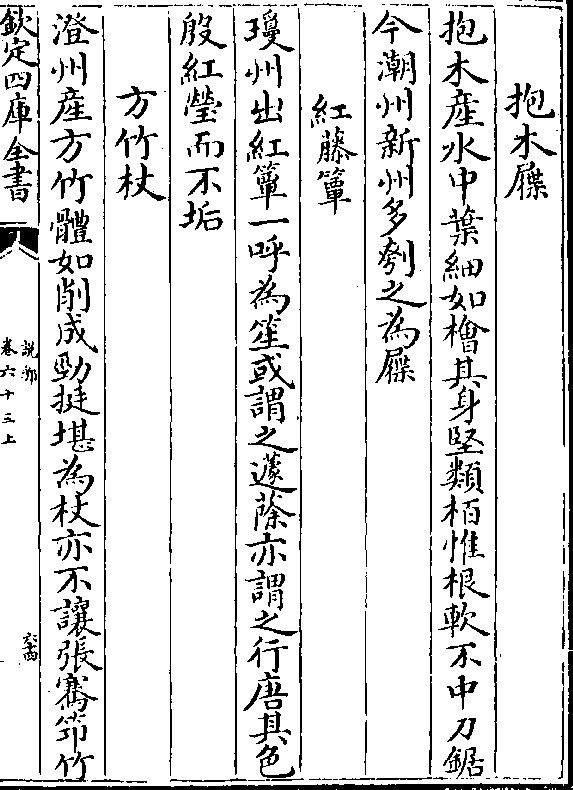 抱木屧
抱木產水中葉細如檜其身堅類栢惟根軟不中刀鋸
今潮州新州多刳之為屧
紅藤簟
瓊州出紅簟一呼為笙或謂之籧蒢亦謂之行唐其色
殷紅瑩而不垢
方竹杖
澄州產方竹體如削成勁挺堪為杖亦不讓張騫筇竹
欽定四庫全書
說郛
卷六十三上